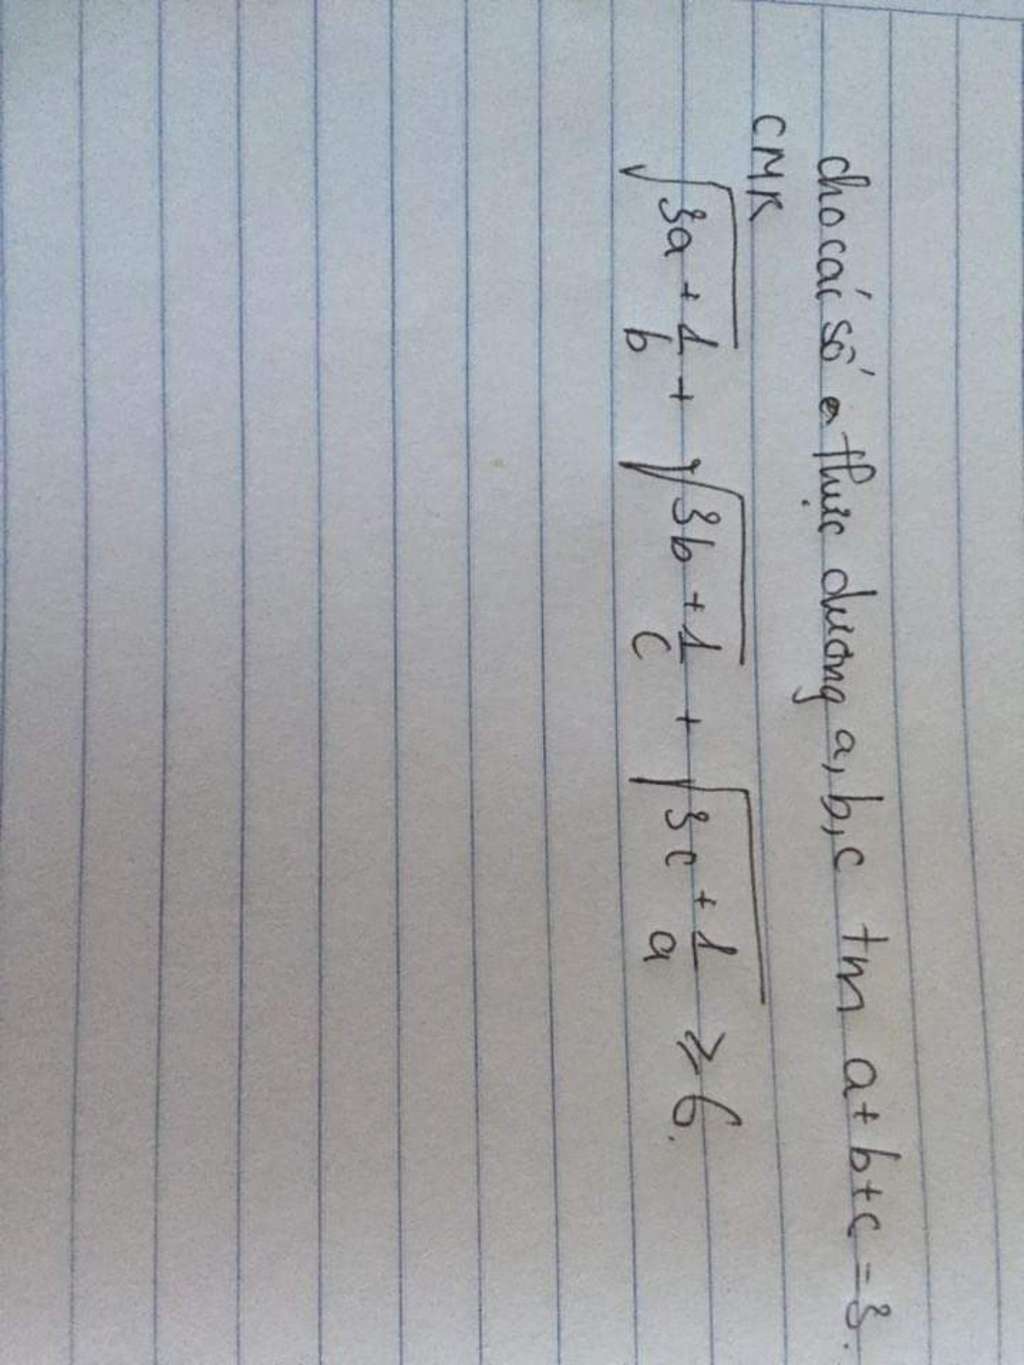 cho các số thực dương a, b, c tm a + b + c = 3.
CMR
√(3a + 1/b) + √(3b + 1/c) + √(3c + 1/a) ≥ 6.